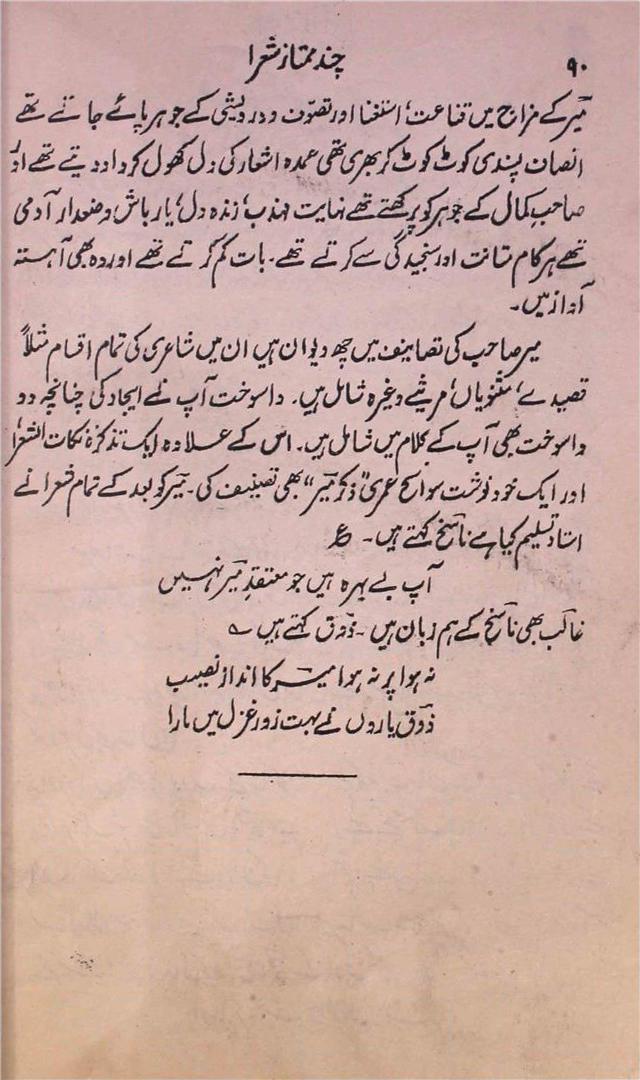 ۹۰
چند ممتاز شعرا
میر کے مزاج میں قناعت، استغنا اور تصوف و درویشی کے جوہر پائے جاتے تھے
انصاف پسندی کوٹ کوٹ کر بھری تھی عمدہ اشعار کی دل کھول کر داد دیتے تھے اور
صاحبِ کمال کے جوہر کو پرکھتے تھے نہایت مہذب، زندہ دل، یار باش وضعدار آدمی
تھے ہر کام متانت اور سنجیدگی سے کرتے تھے۔ بات کم کرتے تھے اور وہ بھی آہستہ
آواز میں۔
میر صاحب کی تصانیف میں چھ دیوان ہیں ان میں شاعری کی تمام اقسام مثلاً
قصیدے، مثنویاں، مرثیے وغیرہ شامل ہیں۔ واسوخت آپ نے ایجاد کی چنانچہ دو
واسوخت بھی آپ کے کلام میں شامل ہیں۔ اس کے علاوہ ایک تذکرہ نکات الشعرا
اور ایک خود نوشت سوانح عمری "ذکرِ میر" بھی تصنیف کی۔ میر کو بعد کے تمام شعرا نے
استاد تسلیم کیا ہے ناسخ کہتے ہیں۔ ع
آپ بے بہرہ ہیں جو معتقدِ میر نہیں
غالب بھی ناسخ کے ہم زبان ہیں۔ ذوق کہتے ہیں ؎
نہ ہوا پر نہ ہوا میر کا انداز نصیب
ذوق یاروں نے بہت زور غزل میں مارا